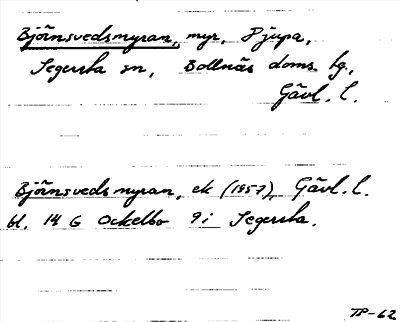 Björnsvedsmyran, myr, Djupa,
Segersta sn, Bollnäs doms. tg.,
Gävl. l.
Björnsvedsmyran, ek (1957), Gävl. l.
bl. 14 G Ockelbo 9i Segersta.
TP-62